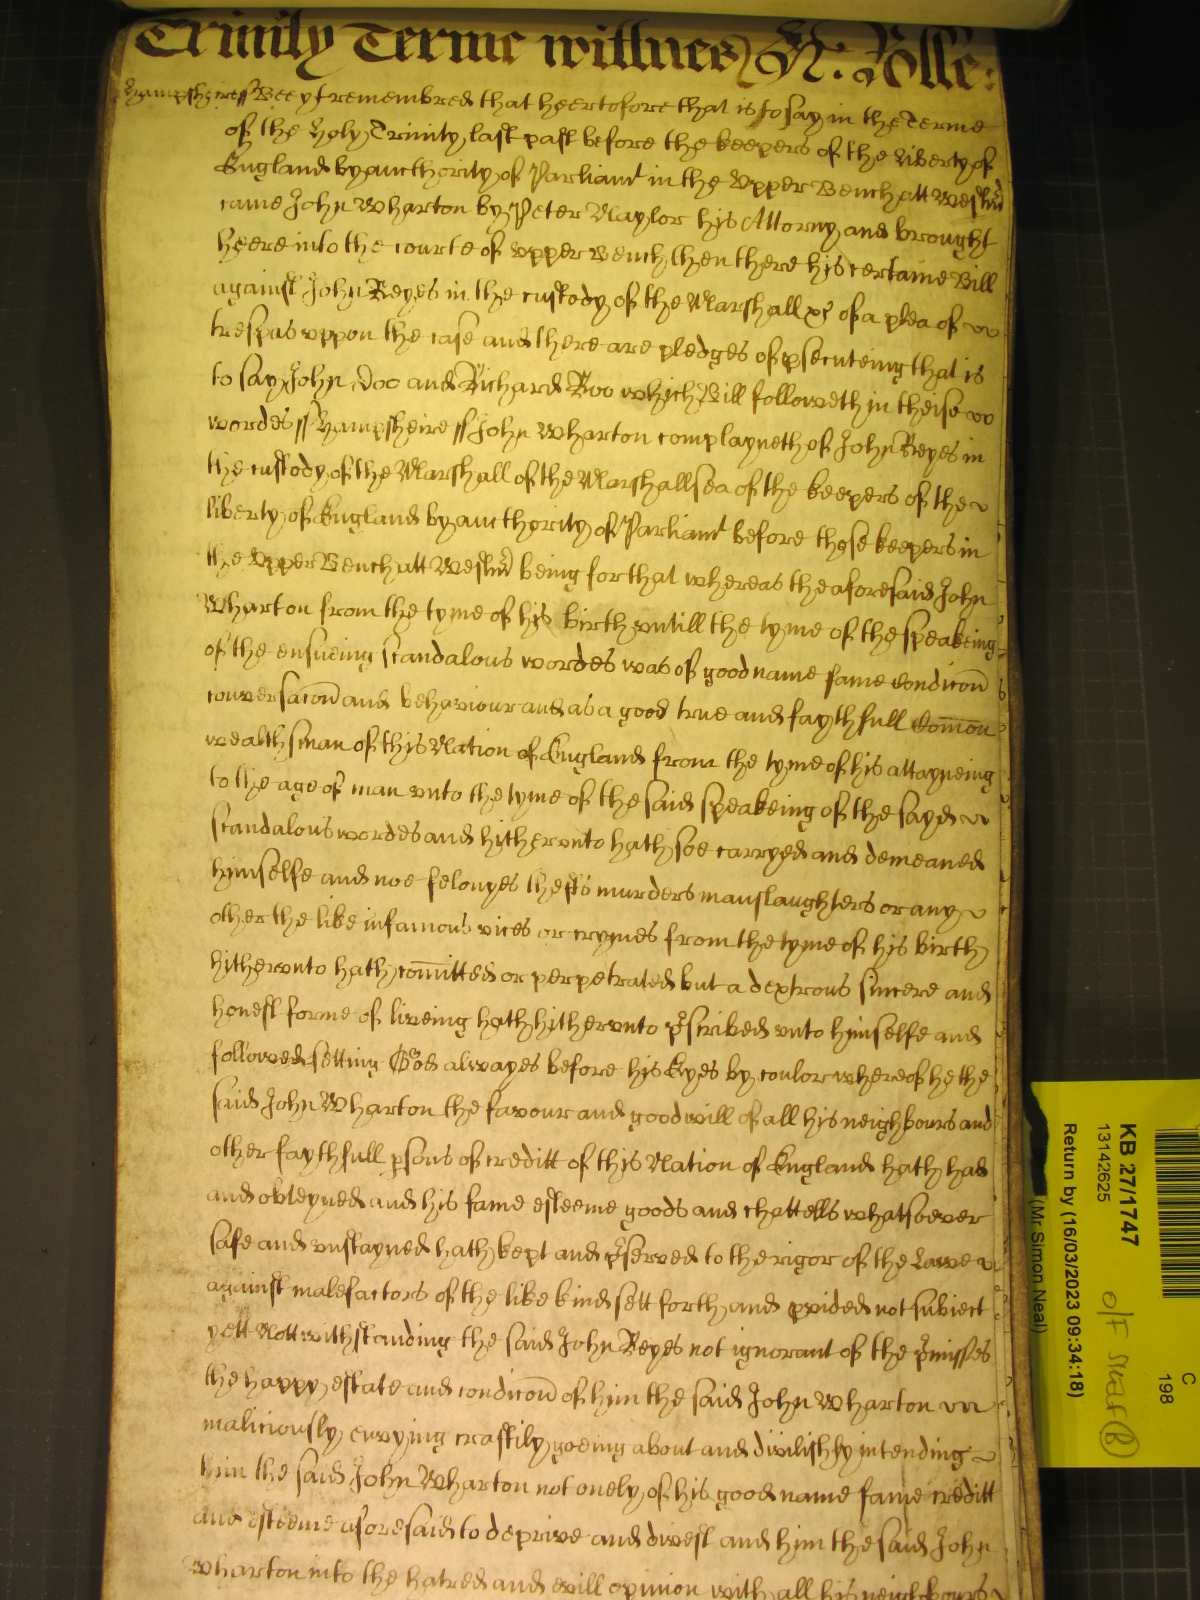 Trinity Terme wittnes H: Rolle:
Hampsheire ss Bee yt remembred that heertofore that is to say in the Terme
of the holy Trinity last past before the keepers of the liberty of
England by aucthority of Parliamt in the Upper Bench att Westmr
came John Wharton by Peter Naylor his Attorny and brought
heere into the courte of upper bench then there his certaine Bill
against John Keyes in the custody of the Marshall &c of a plea of
trespas uppon the case and there are pledges of psecuteing that is
to say John Doo and Richard Roo which Bill followeth in theise
wordes ss Hampsheire ss John Wharton complayneth of John Keyes in
the custody of the Marshall of the Marshallsea of the keepers of the
liberty of England by aucthority of Parliamt before those keepers in
the Upper Bench att Westmr being for that whereas the aforesaid John
Wharton from the tyme of his birth untill the tyme of the speakeing
of the ensueing scandalous wordes was of good name fame condicon
conversacon and behaviour and as a good true and faythfull Comon
wealthsman of this Nation of England from the tyme of his attayneing
to the age of man unto the tyme of the said speakeing of the sayd
scandalous wordes and hitherunto hath soe carryed and demeaned
himselfe and noe felonyes thefts murders manslaughters or any
other the like infamous vices or crymes from the tyme of his birth
hitherunto hath comitted or perpetrated but a dextrous sincere and
honest forme of liveing hath hitherunto pscribed unto himselfe and
followed setting God alwayes before his Eyes by coulor whereof he the
said John Wharton the favour and goodwill of all his neighbours and
other faythfull psons of creditt of this Nation of England hath had
and obteyned and his fame esteeme goods and chattells whatsoever
safe and unstayned hath kept and pserved to the rigor of the Lawe
against malefactors of the like kind sett forth and pvided not subiect
yett Nottwithstanding the said John Keyes not ignorant of the pmisses
the happy estate and condicon of him the said John Wharton
maliciously envying craftily goeing about and divilishly intending
him the said John Wharton not onely of his good name fame creditt
and esteeme aforesaid to deprive and divest and him the said John
Wharton into the hatred and evill opinion with all his neighbours
C
198
KB 27/1747
13142625
Return by (16/03/2023 09:34:18)
(Mr Simon Neal)